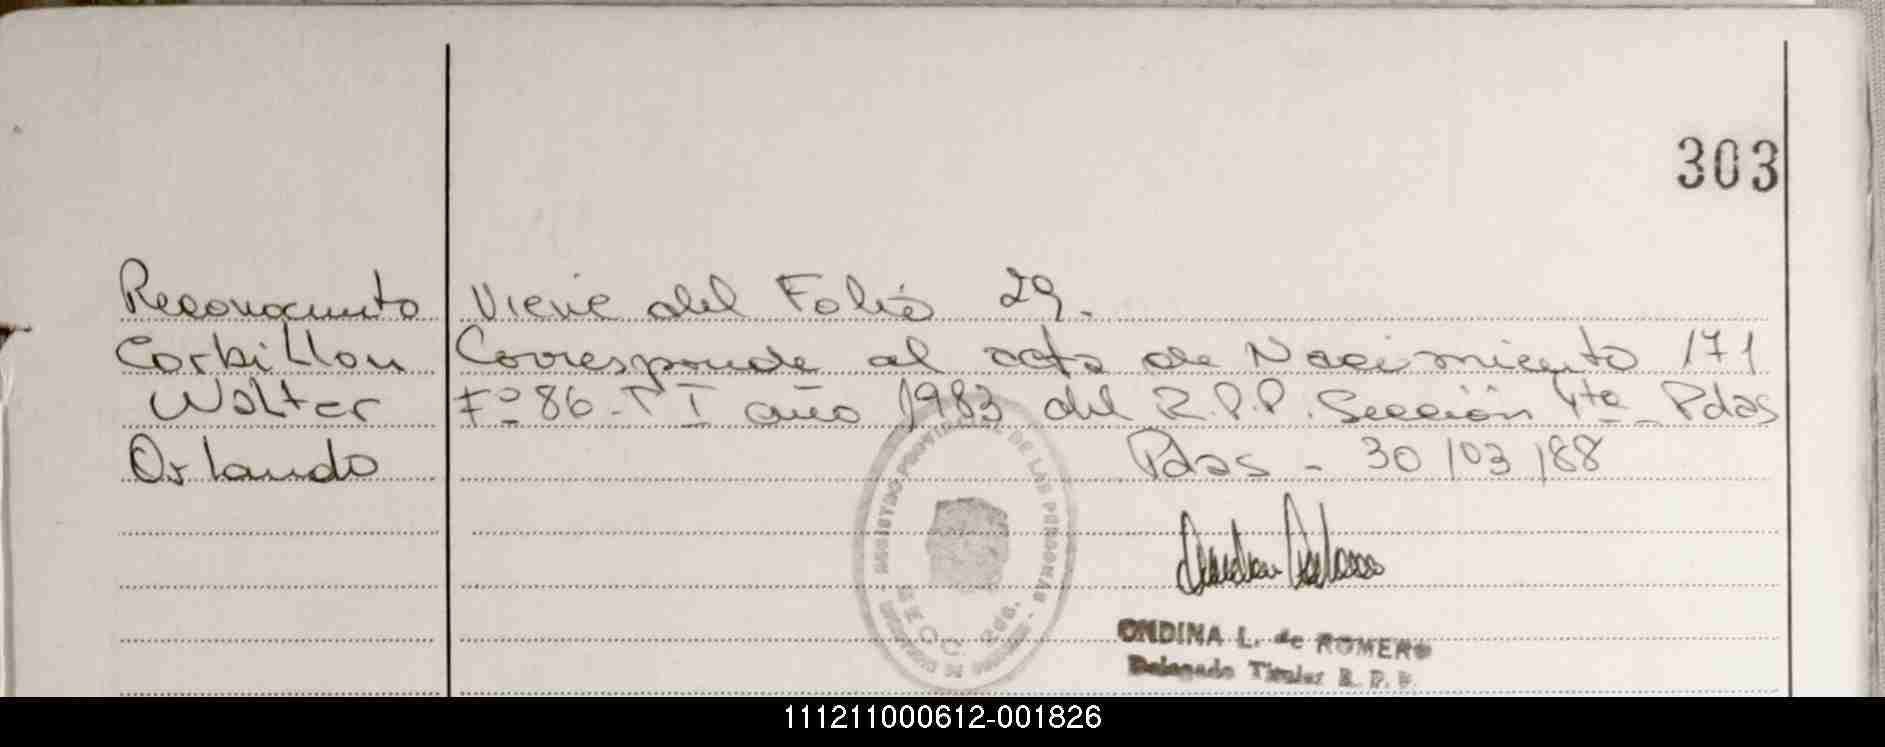 303
Reconocimiento Viene del Folio 29.
Corbillon Corresponde al acta de Nacimiento 171
Walter Fº 86 - T I año 1983 del R.P.P. Sección 4ta - Pdas
Orlando Pdas - 30/03/88
REGISTRO PROVINCIAL DE LAS PERSONAS
SECC. 2da.
ONDINA L. de ROMERO
Delegado Titular R. P. P.
111211000612-001826